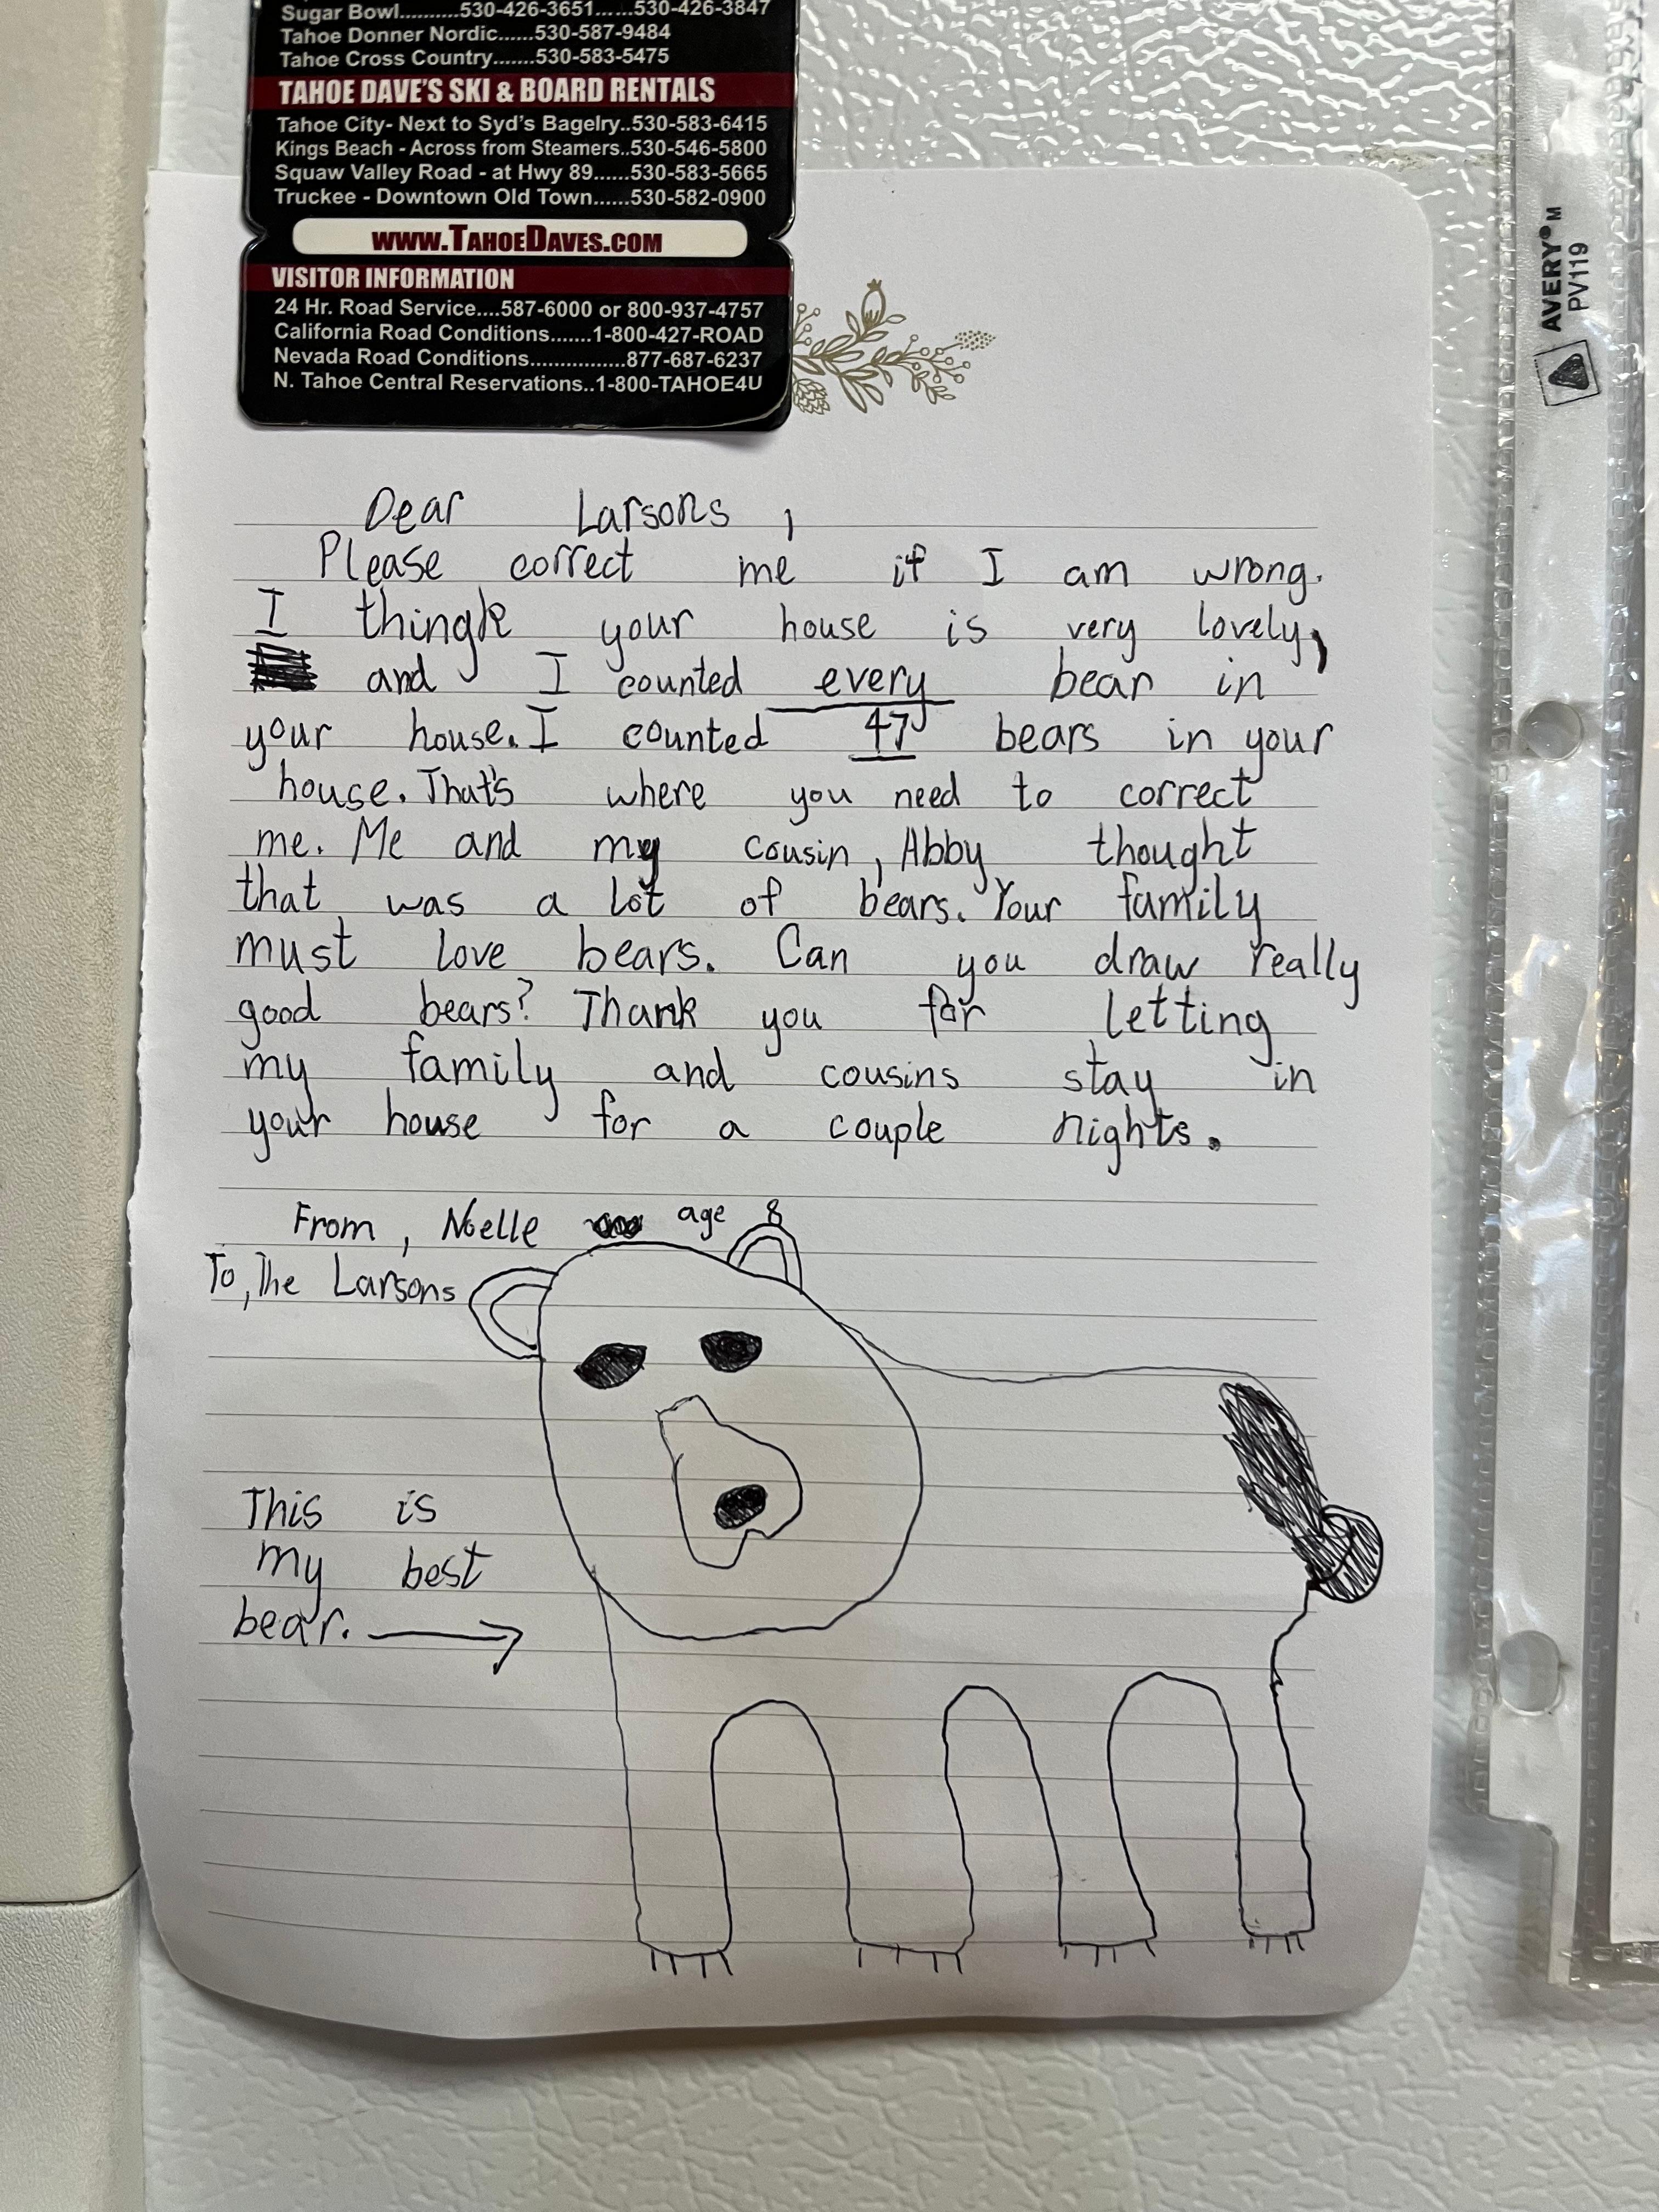 Sugar Bowl..........530-426-3651......530-426-3847
Tahoe Donner Nordic......530-587-9484
Tahoe Cross Country.......530-583-5475
TAHOE DAVE'S SKI & BOARD RENTALS
Tahoe City- Next to Syd's Bagelry..530-583-6415
Kings Beach - Across from Steamers..530-546-5800
Squaw Valley Road - at Hwy 89......530-583-5665
Truckee - Downtown Old Town......530-582-0900
WWW.TAHOEDAVES.COM
VISITOR INFORMATION
24 Hr. Road Service....587-6000 or 800-937-4757
California Road Conditions.......1-800-427-ROAD
Nevada Road Conditions................877-687-6237
N. Tahoe Central Reservations..1-800-TAHOE4U
AVERY® M
PV119
Dear Larsons,
Please correct me if I am wrong.
I thingk your house is very lovely,
and I counted every bear in
your house. I counted 47 bears in your
house. That's where you need to correct
me. Me and my cousin, Abby thought
that was a lot of bears. Your family
must love bears. Can you draw really
good bears? Thank you for letting
my family and cousins stay in
your house for a couple nights.
From, Noelle age 8
To, The Larsons
This is
my best
bear.